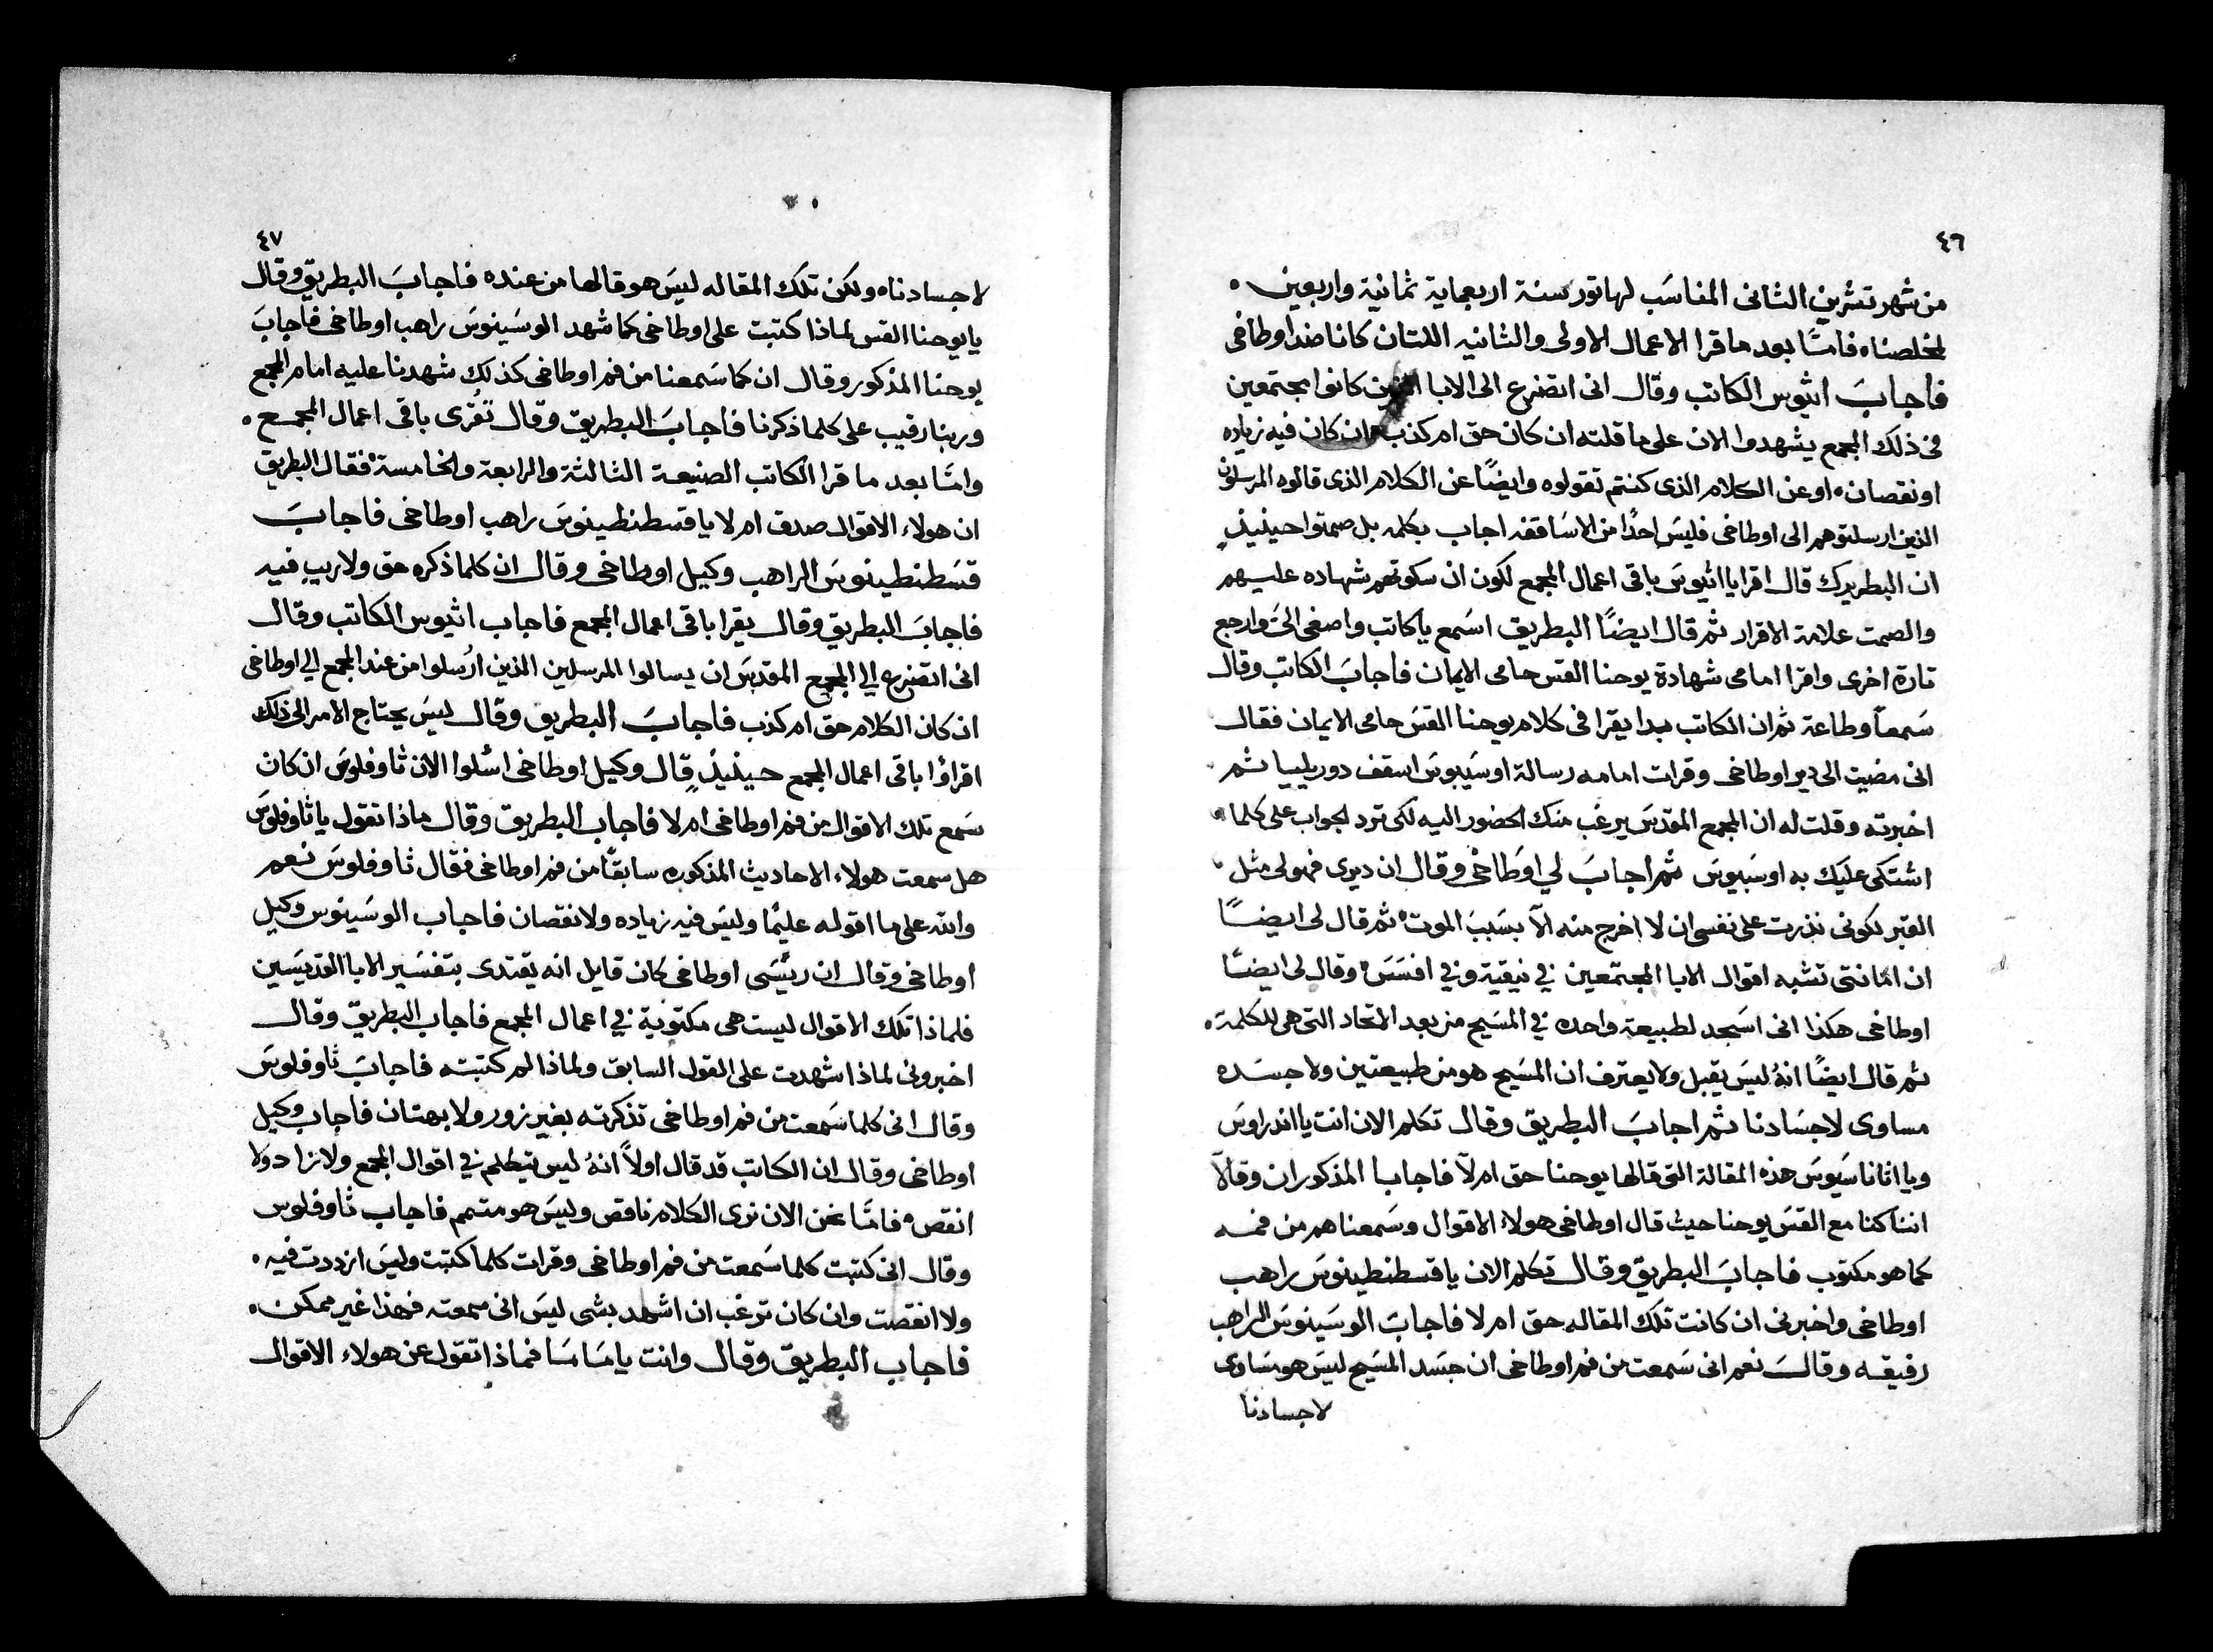 ٤٦
من شهر تشرين الثانى المناسَب لهاتور سنة اربعماية ثمانية واربعين
لمخلصناه فامّا بعد ما قرا الاعمال الاولى والثانيه اللتان كانا ضد اوطاخى
فاجابَ اثيوس الكاتب وقال انى اتضرع الى الابا الذين كانوا مجتمعين
فى ذلك المجمع يشهدوا الان على ما قلته ان كان حق ام كذب وان كان فيه زياده
او نقصان، او عن الكلام الذى كنتم تقولوه وايضًا عن الكلام الذى قالوه المرسلون
الذين ارسلتوهم الى اوطاخى فليسَ احدًا من الاسَاقفه اجاب بكلمه بل صمتوا حينيذٍ
ان البطريرك قال اقرا يا اثيوسَ باقى اعمال المجمع لكون ان سكوتهم شهاده عليهم
والصمت علامة الاقرار ثم قال ايضًا البطريق اسَمع يا كاتب واصغى الىَ وارجع
تارة اخرى واقرا امامى شهادة يوحنا القس حامى الايمان فاجابَ الكاتب وقال
سَمعاً وطاعة ثم ان الكاتب بدا يقرا فى كلام يوحنا القسَ حامى الايمان فقال
انى مضيت الى دير اوطاخى وقرات امامه رسالة اوسَيبوسَ اسقف دوريليا ثم
اخبرته وقلت له ان المجمع المقدسَ يرغب منك الحضور اليه لكى ترد الجواب على كلما
اشتكى عليَك به اوسَبيوسَ ثم اجابَ لي اوطاخى وقال ان ديرى فهو لى مثل
القبر لكونى نذرت على نفسى ان لا اخرج منه الّا بسَببَ الموت ثم قال لى ايضًا
ان امانتى تشبه اقوال الابا المجتمعين في نيقية وفي افسَسَ وقال لى ايضًا
اوطاخى هكذا انى اسَجد لطبيعة واحده في المسَيح من بعد الاتحاد التى هى للكلمة
ثم قال ايضًا انهُ ليسَ يقبل ولا يعترف ان المسَيح هو من طبيعتين ولا جسَده
مساوى لاجسَادنا ثم اجابَ البطريق وقال تكلم الان انت يا اندراوسَ
ويا اثاناسَيوسَ هذه المقالة التى قالها يوحنا حق ام لآ فاجابا المذكوران وقالآ
اننا كنا مع القسَ يوحنا حيث قال اوطاخى هولاء الاقوال وسَمعناهم من فمه
كما هو مكتوب فاجابَ البطريق وقال تكلم الان يا قسطنطينوسَ راهب
اوطاخى واخبرنى ان كانت تلك المقاله حق ام لا فاجابَ الوسَينوسَ الراهب
رفيقه وقالَ نعم انى سَمعت من فم اوطاخى ان جسَد المسَيح ليسَ هو مسَاوى
لاجسادنا
٤٧
لاجسادناه ولكن تلك المقاله ليسَ هو قالها من عنده فاجابَ البطريق وقال
يا يوحنا القس لماذا كتبت على اوطاخى كما شهد الوسَينوسَ راهب اوطاخى فاجابَ
يوحنا المذكور وقال ان كما سَمعنا من فم اوطاخى كذلك شهدنا عليه امام المجمع
وربنا رقيب على كلما ذكرنا فاجابَ البطريق وقال تُقرى باقى اعمال المجمع
وامّا بعد ما قرا الكاتب الصنيعة الثالثة والرابعة والخامسة فقال البطريق
ان هولاء الاقوال صدق ام لا يا قسطنطينوسَ راهب اوطاخى فاجابَ
قسَطنطينوسَ الراهب وكيل اوطاخى وقال ان كلما ذكره حق ولا ريب فيه
فاجابَ البطريق وقال يقرا باقى اعمال المجمع فاجاب اثيوس الكاتب وقال
انى اتضرع الي المجمع المقدسَ ان يسالوا المرسلين الذين ارُسلوا من عند المجمع الي اوطاخى
ان كان الكلام حق ام كذب فاجابَ البطريق وقال ليسَ يحتاج الامر الى ذلك
اقراؤا باقى اعمال المجمع حينيذٍ قال وكيل اوطاخى اسُلوا الان ثاوفلوسَ ان كان
سَمع تلك الاقوال من فم اوطاخى ام لا فاجاب البطريق وقال ماذا تقول يا ثاوفلوسَ
هل سمعت هولاء الاحاديث المذكوره سابقًا من فم اوطاخى فقال ثاوفلوسَ نعم
والله على ما اقوله عليمًا وليسَ فيه زياده ولا نقصان فاجاب الوسَينوس وكيل
اوطاخى وقال ان ريسَى اوطاخى كان قايل انه يقتدى بتفسَير الابا القديسَين
فلماذا تلك الاقوال ليست هى مكتوبة في اعمال المجمع فاجاب البطريق وقال
اخبرونى لماذا شهدت على القول السابق ولماذا لم كتبته فاجابَ ثاوفلوسَ
وقال انى كلما سَمعت من فم اوطاخى تذكرته بغير زور ولا بهتان فاجاب وكيل
اوطاخى وقال ان الكاتب قد قال اولاً انهُ ليس يتكلم في اقوال المجمع ولا زاد ولا
انقص فامّا نحن الان نرى الكلام ناقص وليسَ هو متمم فاجاب ثاوفلوس
وقال انى كتبت كلما سَمعت من فم اوطاخى وقرات كلما كتبت وليسَ ازددت فيه
ولا انقصت وان كان ترغب ان اشهد بشى ليسَ انى سمعته فهذا غير ممكن
فاجاب البطريق وقال وانت يا مَامَا فماذا تقول عن هولاء الاقوال